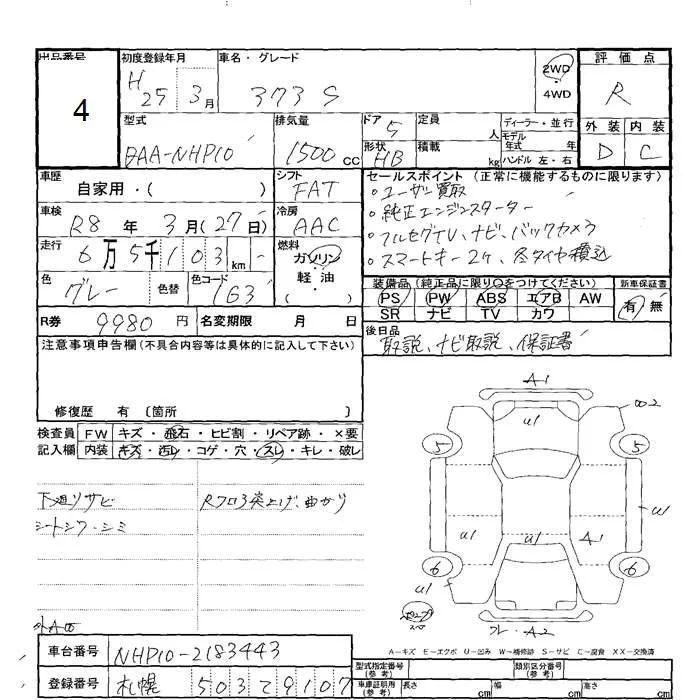 出品番号
4
初度登録年月
H 25 3月
車名・グレード
373 S
2WD
・
4WD
評価点
R
外装 内装
D C
型式
DAA-NHP10
排気量
1500 cc
ドア
5
形状
HB
定員
人
積載
kg
ディーラー・並行
モデル
年式 年
ハンドル 左・右
車歴
自家用・( )
シフト
FAT
車検
R8年 3月(27日)
冷房
AAC
走行
6万5千103km
燃料
ガソリン・
軽油
( )
色
グレー
色替
色コード
1G3
R券
9980円
名変期限 月 日
セールスポイント (正常に機能するものに限ります)
・ユーザー買取
・純正エンジンスターター
・フルセグTV、ナビ、バックカメラ
・スマートキー2ケ、冬タイヤ積込
装備品(純正品に限り○をつけてください)
PS PW ABS エアB AW
SR ナビ TV カワ
新車保証書
有 無
後日品
取説、ナビ取説、保証書
注意事項申告欄(不具合内容等は具体的に記入して下さい)
修復歴 有 〔箇所 〕
検査員
記入欄
FW キズ・飛石・ヒビ割・リペア跡・×要
内装 キズ・汚レ・コゲ・穴・スレ・キレ・破レ
下廻りサビ
シートシワ・シミ
Rフロア突上げ、曲がり
A1
U1
5
5
U1
U1
U1
A1
6
6
U1
スペア
A2
A=キズ E=エクボ U=凹み W=補修跡 S=サビ C=腐食 XX=交換済
車台番号
NHP10-2183443
登録番号
札幌 503 て 9107
型式指定番号
(参考)
類別区分番号
(参考)
車庫証明用
(参考)
長さ cm
幅 cm
高さ cm